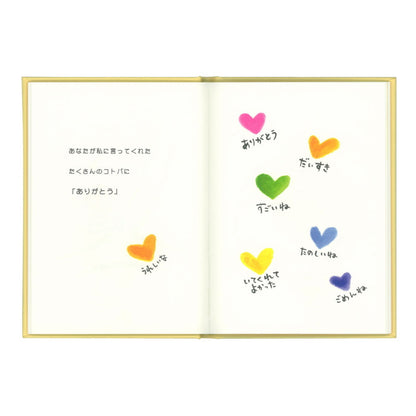 あなたが私に言ってくれた
たくさんのコトバに
「ありがとう」
うれしいな
ありがとう
だいすき
すごいね
たのしいね
いてくれて
よかった
ごめんね